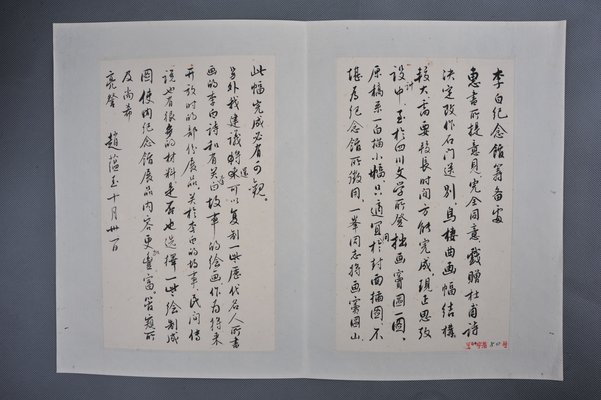 李白纪念馆筹备处
惠书所提意见完全同意戏赠杜甫诗
决定改作石门送别乌栖曲画幅结构
较大需要较长时间方能完成现正思考
设计中至于四川文学所登拙画窦圌一图
原稿系一白描小幅只适宜于封面插图不
堪为纪念馆所征同一峯同志将画窦圌山
此幅完成必有可观
另外我建议将来还可以复制一些历代名人所书
画的李白诗和有关李白故事的绘画作为将来
开放时的部份展品关于李白的故事民间传
说也有很多的材料是否也选择一些绘制成
图使纪念馆展品内容更加丰富管窥所
及尚希
亮詧 赵蕴玉十月卅一日